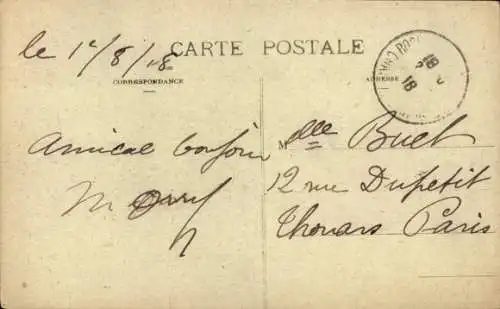 le 1r/8/18
CARTE POSTALE
CORRESPONDANCE
ADRESSE
Amical bonjour
M
Mlle Buet
12 rue Dupetit
Thouars Paris
18